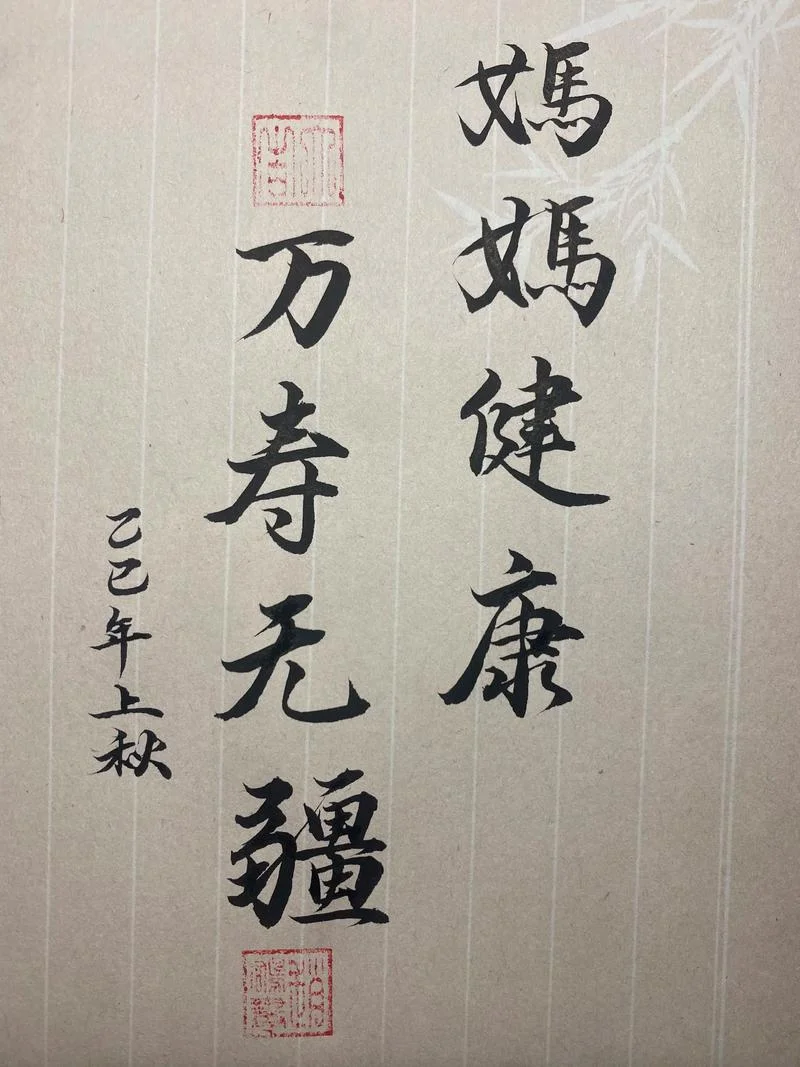 媽媽健康
万寿无疆
乙巳年上秋